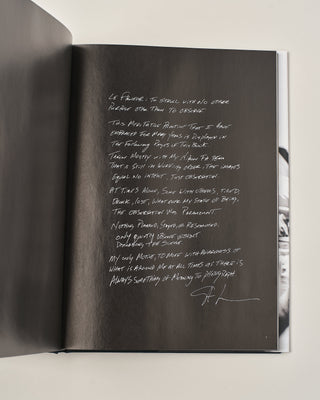 LE FLANEUR: TO STROLL WITH NO OTHER
PURPOSE OTHER THAN TO OBSERVE
THIS MEDITATIVE PRACTICE THAT I HAVE
EMBRACED FOR MANY YEARS IS DISPLAYED IN
THE FOLLOWING PAGES OF THIS BOOK.
TAKEN MOSTLY WITH MY
THAT IS STILL IN WORKING ORDER. THE IMAGES
EQUAL NO INTENT, JUST OBSERVATION.
AT TIMES ALONE, SOME WITH OTHERS, TIRED,
DRUNK, LOST, WHAT EVER MY STATE OF BEING,
THE OBSERVATION WAS PARAMOUNT
NOTHING PLANNED, STAGED, OR RESEARCHED.
ONLY QUIETLY
THE SCENE
MY ONLY MOTIVE, TO MOVE WITH AWARENESS OF
WHAT IS AROUND ME AT ALL TIMES AS THERE IS
ALWAYS SOMETHING OF MEANING TO PHOTOGRAPH